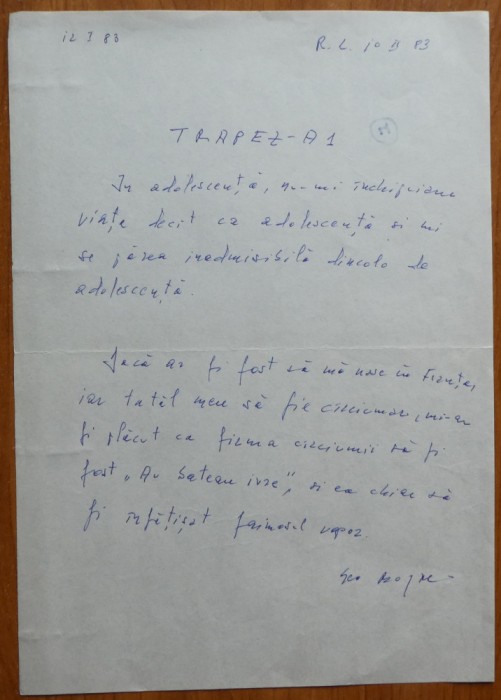 12 I 83
R. L. 10 II 83
TRAPEZ-A1
51
In adolescență, nu-mi închipuiam
viața decît ca adolescență și mi
se părea inadmisibilă dincolo de
adolescență.
Dacă ar fi fost să mă nasc în Franța,
iar tatăl meu să fie cîrciumar, mi-ar
fi plăcut ca firma cîrciumii să fi
fost „Au bateau ivre”, și ea chiar să
fi înfățișat faimosul vapor.
Geo Bogza